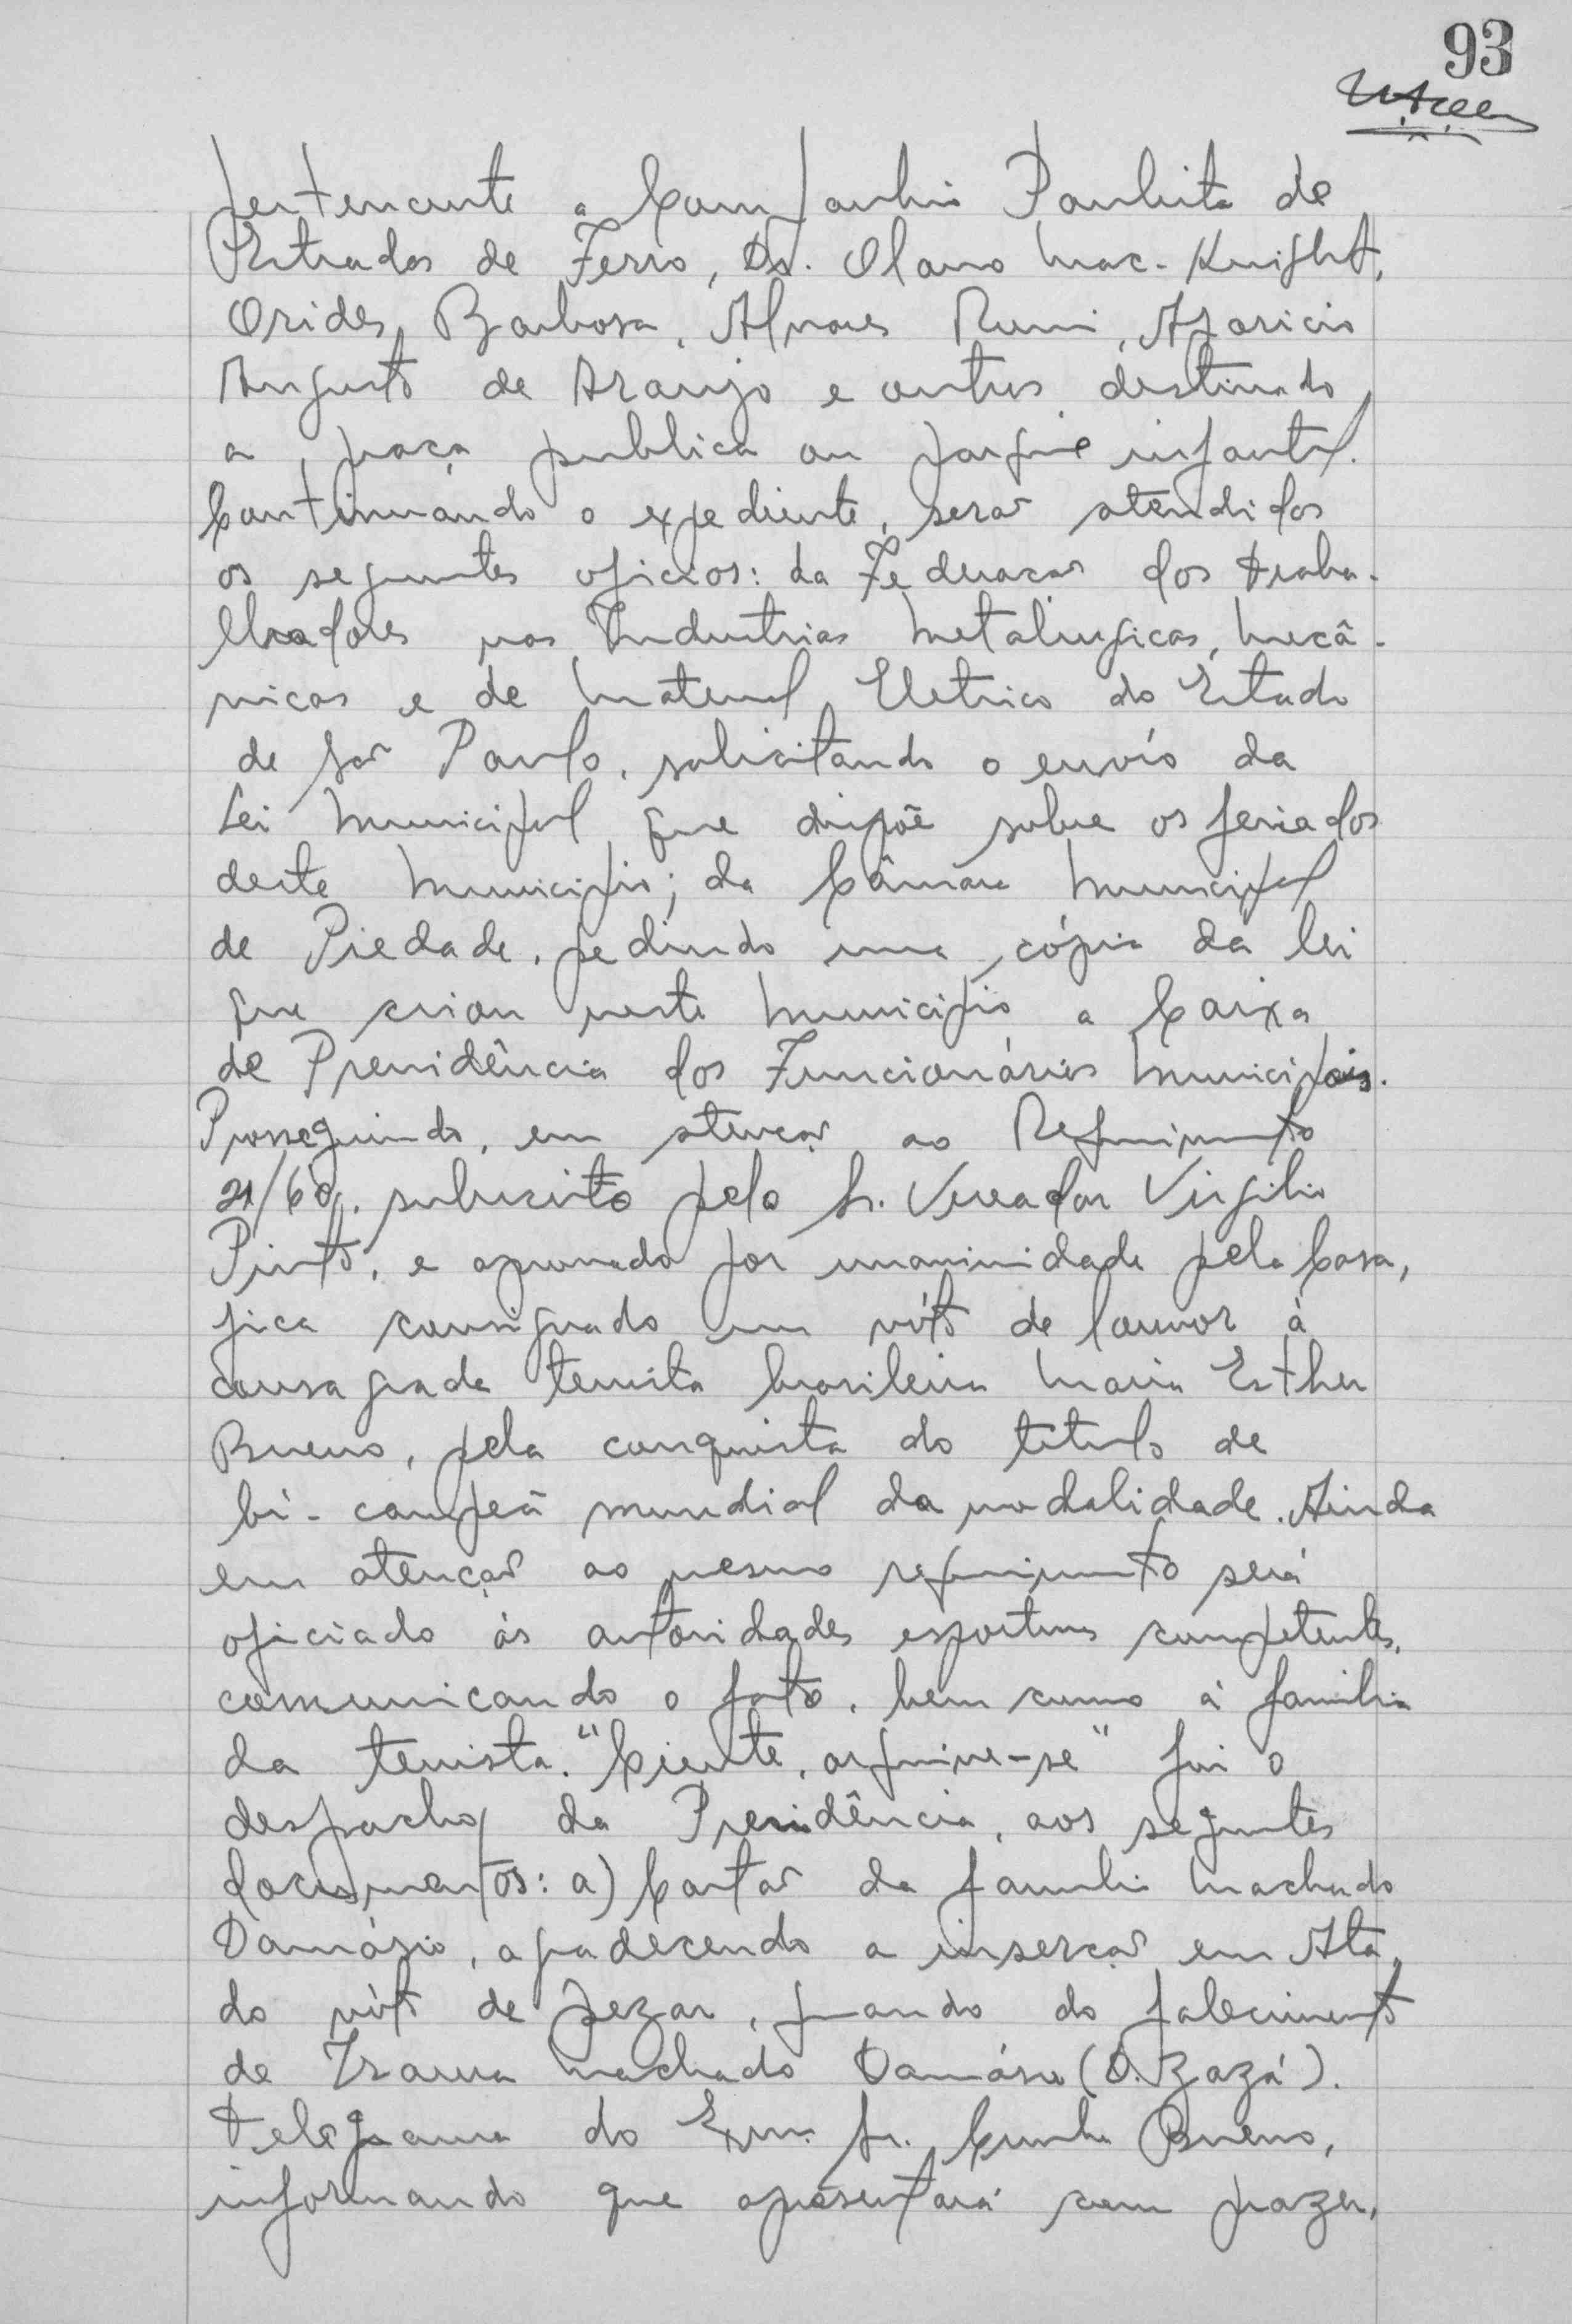 93
pertencente a Companhia Paulista de
Estradas de Ferro, Dr. Olavo Mac-Knight,
Orides Barbosa, Alvares Rumi, Aparicio
Augusto de Araujo e outros destinado
a praça publica ou parque infantil.
Continuando o expediente, serão atendidos
os seguintes oficios: da Federacao dos traba-
lhadores nas Industrias Metalurgicas, Mecâ-
nicas e de Material Eletrico do Estado
de São Paulo, solicitando o envio da
Lei Municipal que dispõe sobre os feriados
deste Municipio; da Câmara Municipal
de Piedade, pedindo uma cópia da lei
que criou neste Municipio a Caixa
de Previdência dos Funcionários Municipais.
Prosseguindo, em atencão ao Requerimento
21/60, subscrito pelo Sr. Vereador Virgilio
Pinto, e aprovado por unanimidade pela Casa,
fica consignado um vóto de louvor à
consagrada tenista brasileira Maria Esther
Bueno, pela conquista do titulo de
bi-campeã mundial da modalidade. Ainda
em atenção ao mesmo requerimento será
oficiado às autoridades esportivas competentes,
comunicando o fato, bem como à familia
da tenista. "Ciente, arquive-se" foi o
despacho da Presidência, aos seguintes
documentos: a) Cartão da familia Machado
Damásio, agradecendo a inserção em Ata
do vóto de pezar, quando do falecimento
de Izaura Machado Damásio (D. Zazá).
Telegrama do Exmo. Sr. Cunha Bueno,
informando que apresentará com prazer,